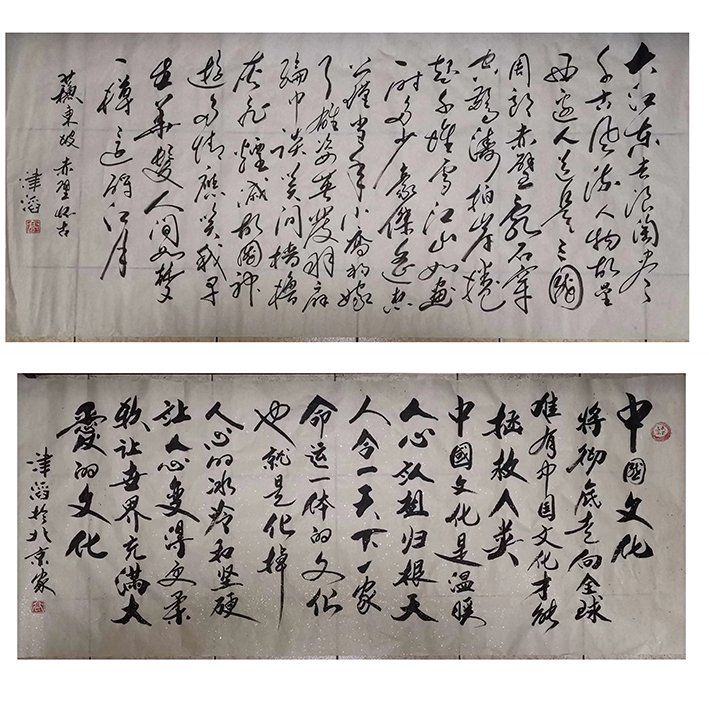 大江东去浪淘尽
千古风流人物故垒
西边人道是三國
周郎赤壁乱石穿
空惊涛拍岸捲
起千堆雪江山如畫
一时多少豪傑遥想
公瑾当年小喬初嫁
了雄姿英发羽扇
纶巾谈笑间檣橹
灰飞煙滅故國神
游多情應笑我早
生華髮人间如梦
一樽还酹江月
蘇東坡赤壁怀古
津滔
中國文化
将彻底走向全球
唯有中国文化才能
拯救人类
中國文化是温暖
人心认祖归根天
人合一天下一家
命运一体的文化
也就是化掉
人心的冰冷和坚硬
让人心变得更柔
软让世界充满大
愛的文化
津滔於北京家